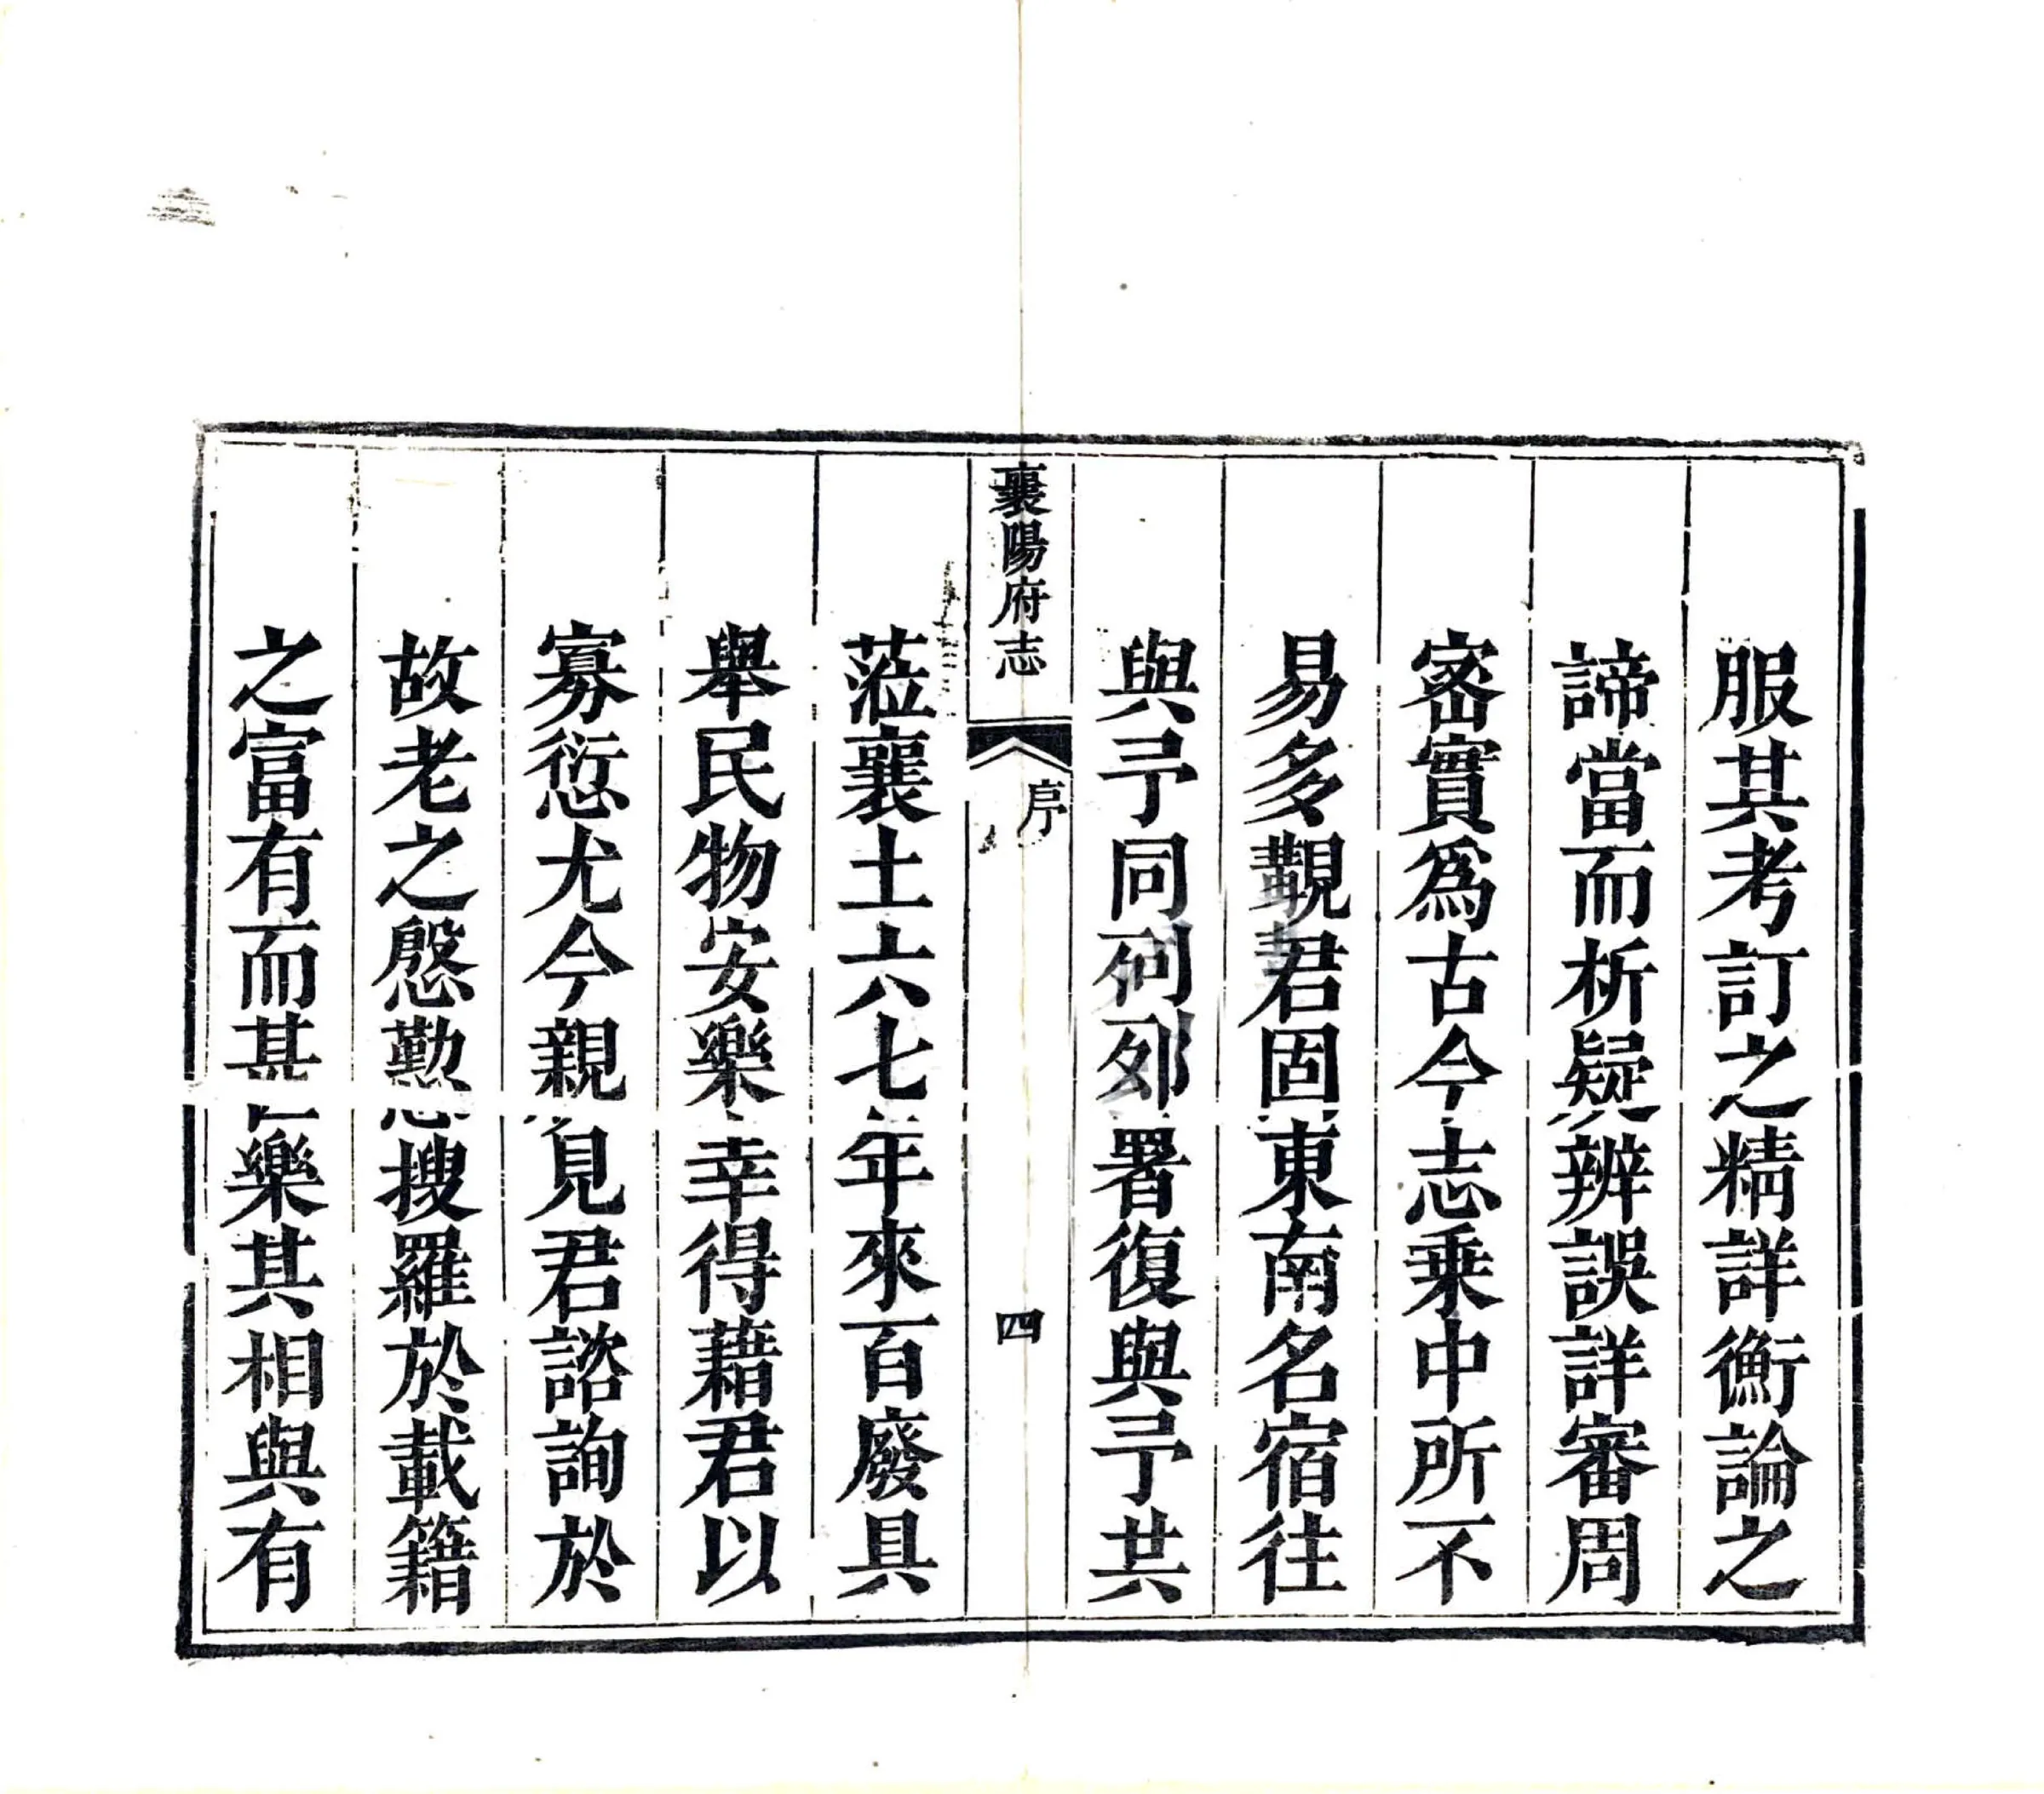 服其考訂之精詳衡論之
諦當而析疑辨誤詳審周
密實爲古今志乗中所不
易多覯君固東南名宿往
與予同列署復與予共
襄陽府志
序
四
蒞襄土六七年來百廢具
舉民物安樂幸得藉君以
寡愆尤今親見君諮詢於
故老之慇懃搜羅於載籍
之富有而甚樂其相與有